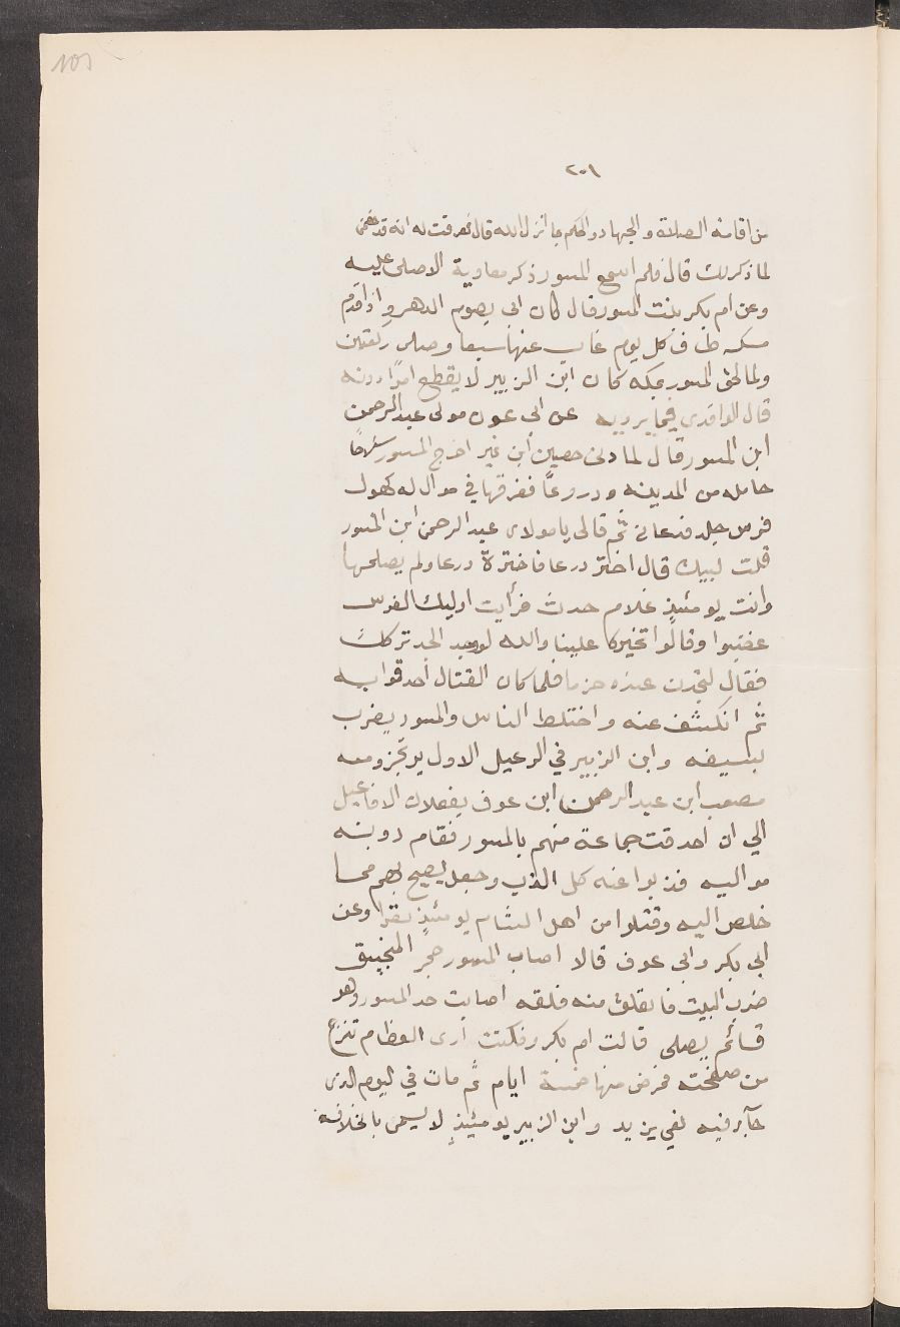 103
٢٠١
من اقامة الصلاة والجهاد والحكم بما انزل الله قال فعرفت له انه قد خصمنى
لما ذكر لك قال فلم اسمع المسور ذكر معاوية الا صلى عليه
وعن ام بكر بنت المسور قال كان ابى يصوم الدهر واذا قدم
مكه طاف كل يوم غاب عنها سبعا وصلى ركعتين
ولما لحق المسور بمكه كان ابن الزبير لا يقطع امرًا دونه
قال الواقدى فيما يرويه عن ابى عون مولى عبد الرحمن
ابن المسور قال لما دنى حصين ابن نمير اخرج المسور سلاحًا
حامله من المدينه ودروعًا ففرقها في موال له كهول
فرس جلد فدعانى ثم قال لى يا مولاى عبد الرحمن ابن المسور
قلت لبيك قال اختر درعا فاخترة درعا ولم يصلحها
وانت يومئيذٍ غلام حدث فرأيت اوليك الفرس
غضبوا وقالوا تخيركا علينا والله لو الجد تركك
فقال لتجدن عنده حزما فلما كان القتال أحدقوا به
ثم انكشف عنه واختلط الناس والمسور يضرب
بسيفه وابن الزبير في الرعيل الاول يرتجز ومعه
مصعب ابن عبد الرحمن ابن عوف يفعلان الافاعيل
الي ان احدقت جماعة منهم بالمسور فقام دونه
مواليه فذبوا عنه كل الذب وجعل يصيح بهم فما
خلص اليه وقتلوا من اهل الشام يومئيذٍ نفرا وعن
ابى بكر وابى عوف قالا اصاب المسور حجر المنجنيق
ضرب البيت فانفلق منه فلقه اصابت خد المسور وهو
قائم يصلى قالت ام بكر وفكنت أرى العظام تنزع
من صفحته فمرض منها خمسة ايام ثم مات في ليوم الذى
جآء فيه نعي يزيد وابن الزبير يومئيذٍ لا يسمى بالخلافه